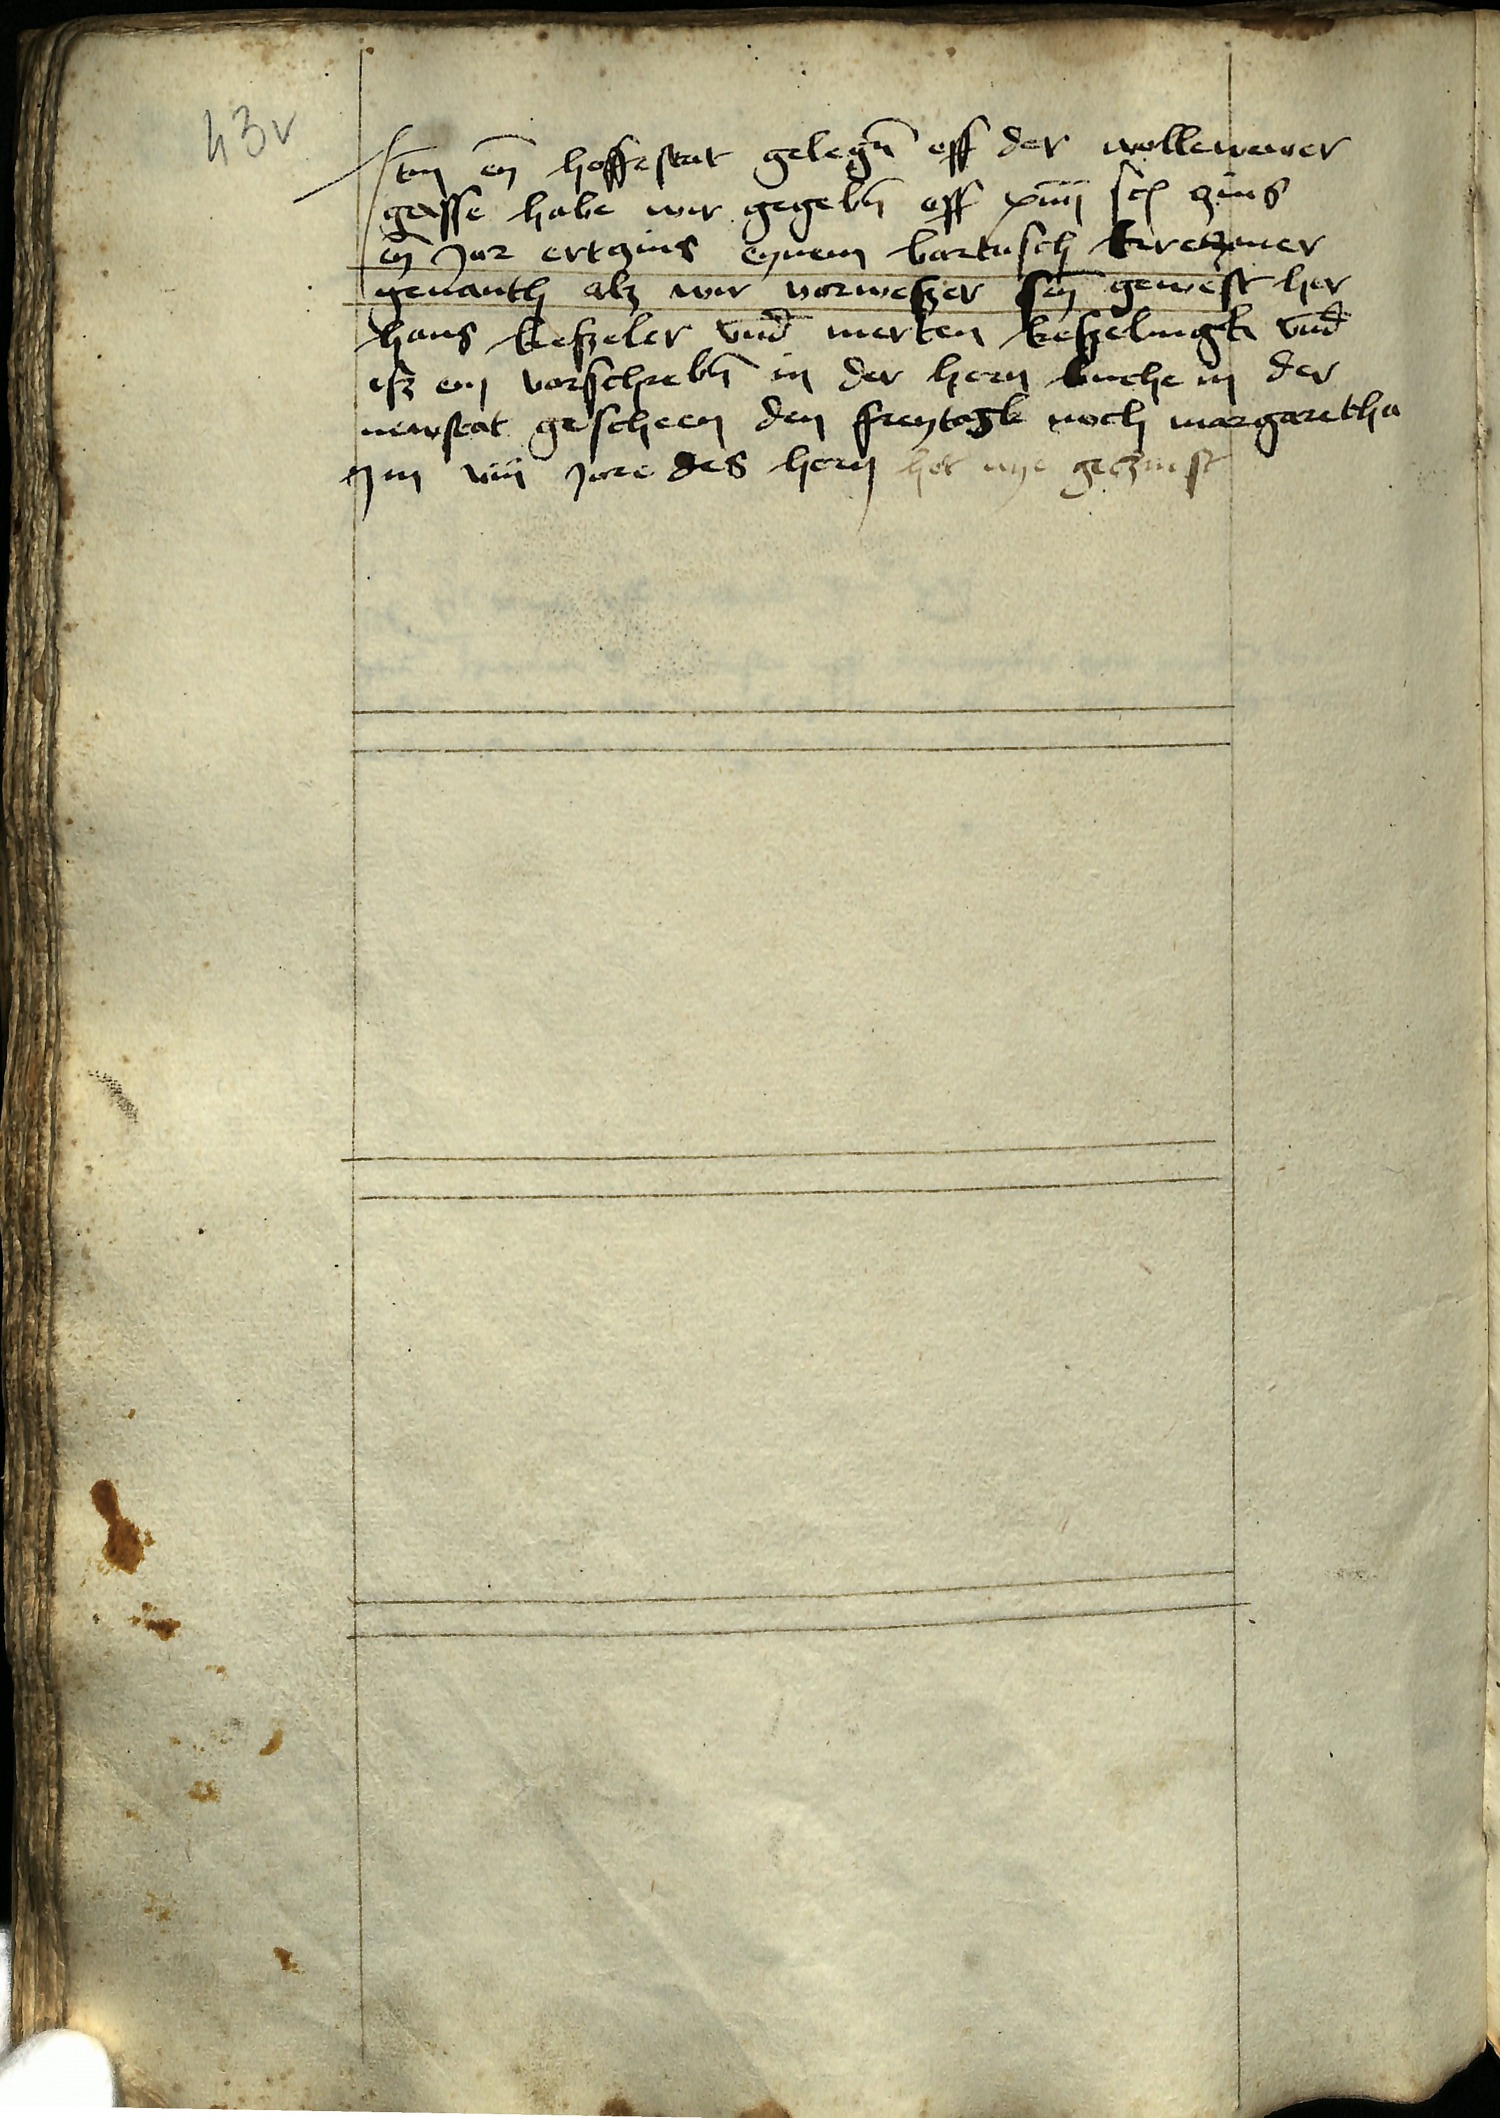 43v
Itm en hoffestat gelegn off der wollewewer
gasse habe wir gegebn off xiiij sc zins
en Jor ertzins eynem bartusch kreczmer
genanth alz wir vorweszer sen gewest her
hans keszeler vnd merten keszelingk vnd
isz em vorschrebn in der hern buche in der
newstat gescheen den freytagk noch margaretha
Im viij Jore des hern hot nye geczinst